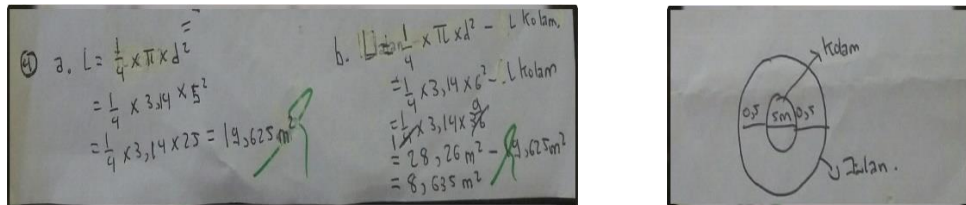 ④ a. L = 1/4 × π × d²
= 1/4 × 3,14 × 5²
= 1/4 × 3,14 × 25 = 19,625 m²
b. 1/4 × π × d² - L kolam.
= 1/4 × 3,14 × 6² - L kolam
= 1/4 × 3,14 × 36 9
= 28,26 m² - 19,625 m²
= 8,635 m²
Kolam
0,5 5m 0,5
Jalan.